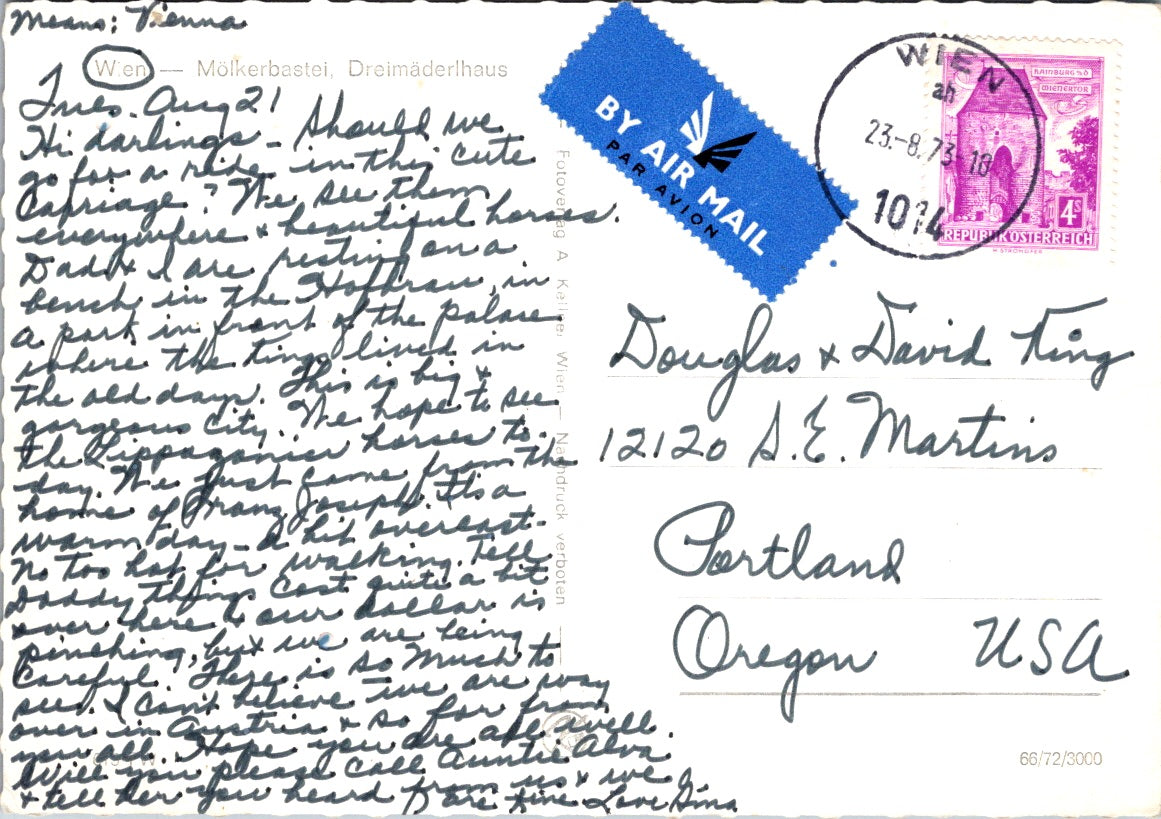 Means: Vienna
Wien — Mölkerbastei, Dreimäderlhaus
Tues. Aug 21
Hi darlings - Should we
go for a ride in this cute
Carriage? We see them
everywhere & beautiful horses.
Dad & I are resting on a
bench in the Hofbrau, in
a park in front of the palase
where the kings lived in
the old days. This is big &
gorgeous city. We hope to see
the Lippaganier horses to-
day. We just came from the
home of Franz Joseph. It's a
warm day - a bit overcast -
No too hot for walking. Tell
Daddy things cost quite a bit
over here & our dollar is
pinching, but we are being
Careful. There is so much to
see. I can't believe we are way
over in Austria & so far from
you all. Hope you are all well.
Will you please call Auntie Alva
& tell her you heard from us & we
are fine Love
Fotoverlag A. Wien — Nachdruck verboten
BY AIR MAIL
PAR AVION
WIEN
23.-8.73-18
1014
HAINBURG %D
WIENERTOR
4S
REPUBLIK ÖSTERREICH
Douglas & David King
12120 S.E. Martins
Portland
Oregon USA
66/72/3000